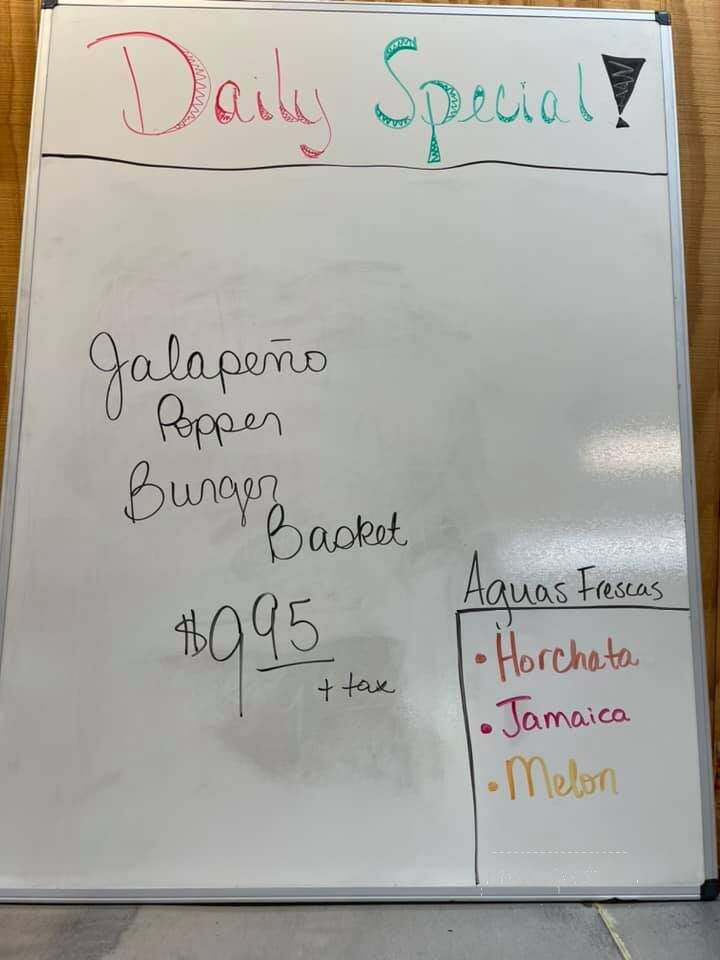 Daily Special!
Jalapeño
Popper
Burger
Basket
$9 95
+ tax
Aguas Frescas
• Horchata
• Jamaica
• Melon